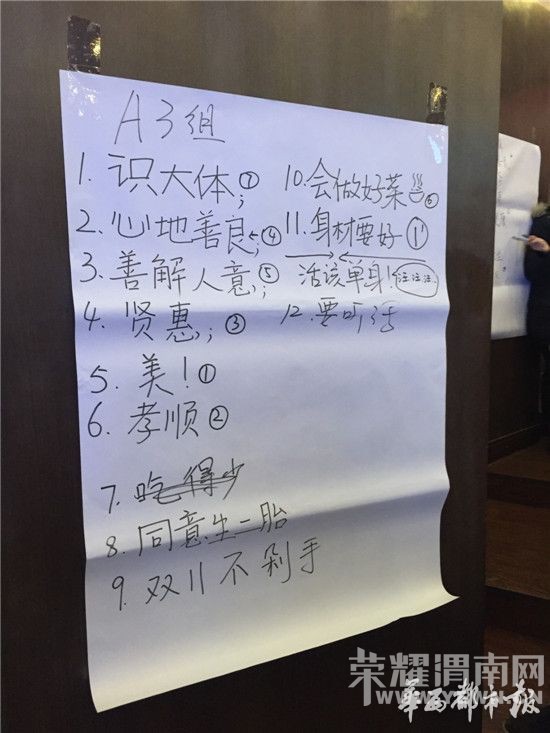 A3组
1. 识大体;⑦
2. 心地善良;④
3. 善解人意;⑤
4. 贤惠;③
5. 美!①
6. 孝顺②
7. 吃得少
8. 同意生二胎
9. 双11不剁手
10. 会做好菜⑥
11. 身材要好①'
活该单身!注注注.
12. 要听话
荣耀渭南网
华西都市报